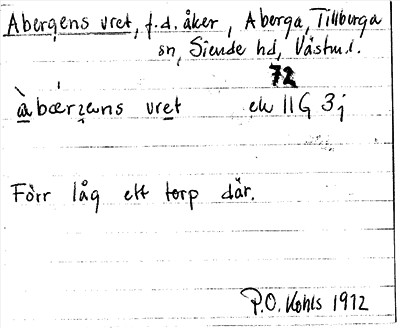 Abergens vret, f.d. åker, Aberga, Tillberga
sn, Siende hd, Västm.l.
72
vret ek 11G 3j
Förr låg ett torp där.
P.O. Kohls 1972